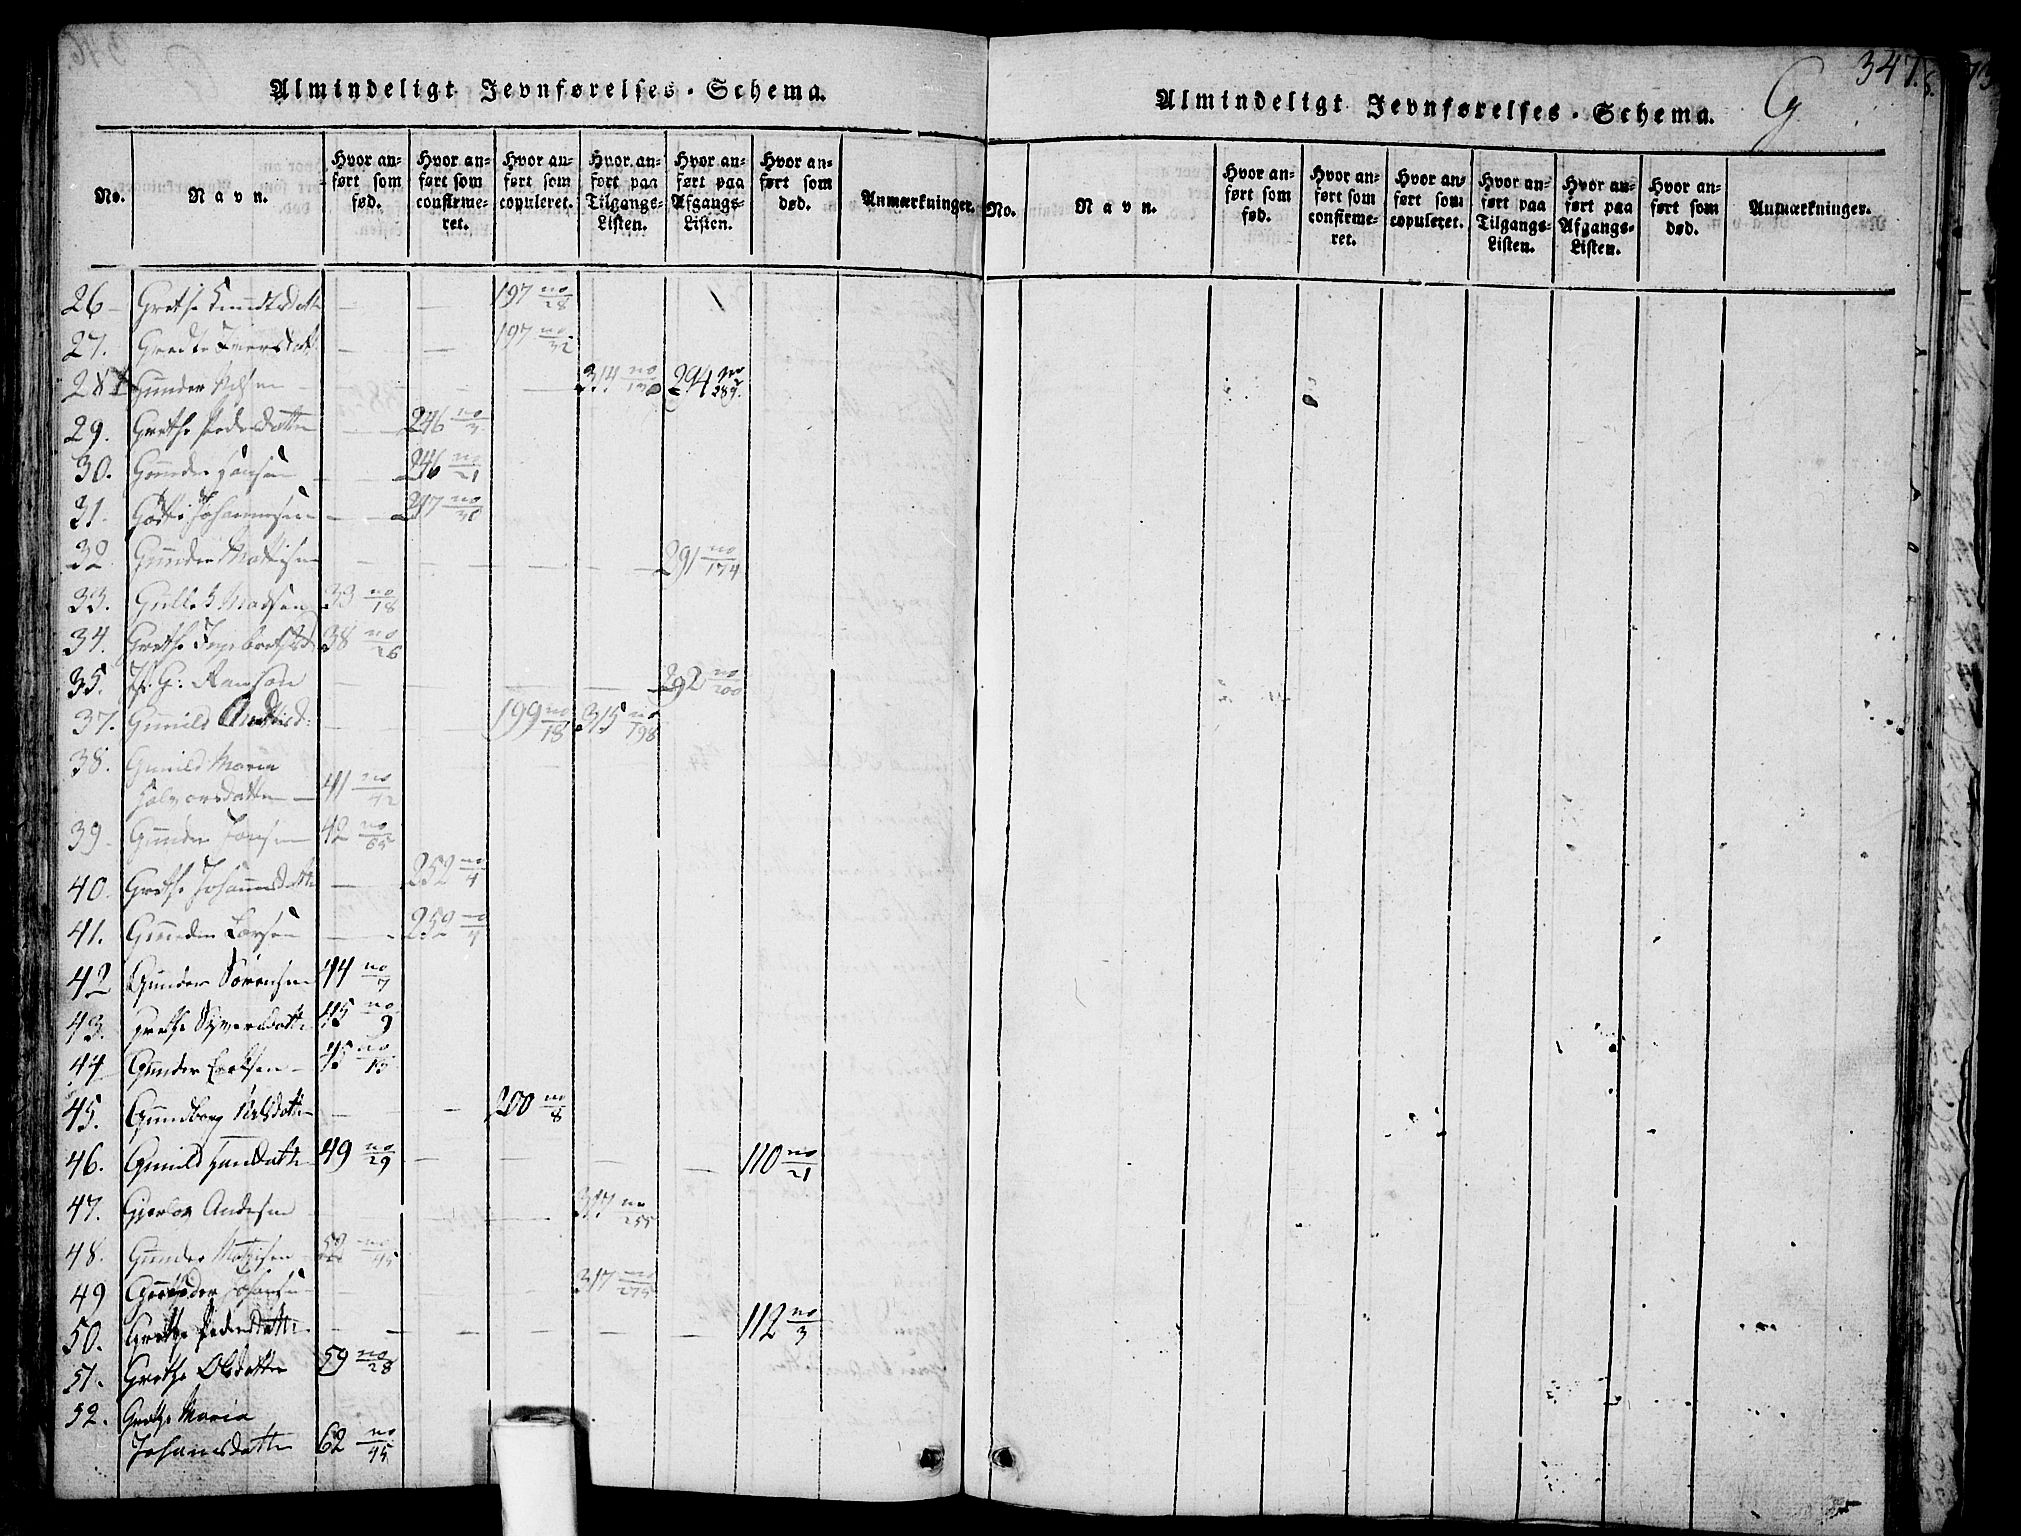 Almindeligt Jevnførelses-Schema.
No.
Navn.
Hvor anført som fød.
Hvor anført som confirmeret.
Hvor anført som copuleret.
Hvor anført paa Tilgangs-Listen.
Hvor anført paa Afgangs-Listen.
Hvor anført som død.
Anmærkninger.
26 Grethe Knudtsdatte — — 197 no/28
27. — — 197 no/32
28 Gunder — — 314 no/130 294
29. Grethe Pedersdatter — 246 no/3
30. Gunder Hansen — 246 no/21
31. Johannesen — 247 no/30
32 Gunder Mathisen — — — — 291 no/174
33. Gulle Madsen 33 no/18
34. Grethe Ingebrethsd 38 no/26
35. — — — — 292 no/200
37. Gunild — — 199 no/18 315 no/198
38. Gunild Maria
Halvorsdatter — 41 no/42
39 Gunder Jansen 42 no/65
40. Grethe Johannesdatte — 252 no/4
41. Gunder Larsen — 252 no/4
42 Gunder Sørensen 44 no/7
43. Grethe Syversdatte 45 no/9
44 Gunder Carlsen 45 no/13
45. Gundborg Nilsdatte — — 200 no/8
46. Gunild Hansdatte 49 no/29 — — — — 110 no/21
47. Gjerlov Andersen — — — 317 no/255
48. Gunder Mathisen 58 no/45
49 — — — 317 no/275
50. Grethe Pedersdatte — — — — — 112 no/3
51. Grethe Olsdatter 59 no/28
52. Grethe Maria
Johannesdatte 62 no/45
Almindeligt Jevnførelses-Schema.
G
347.
No.
Navn.
Hvor anført som fød.
Hvor anført som confirmeret.
Hvor anført som copuleret.
Hvor anført paa Tilgangs-Listen.
Hvor anført paa Afgangs-Listen.
Hvor anført som død.
Anmærkninger.